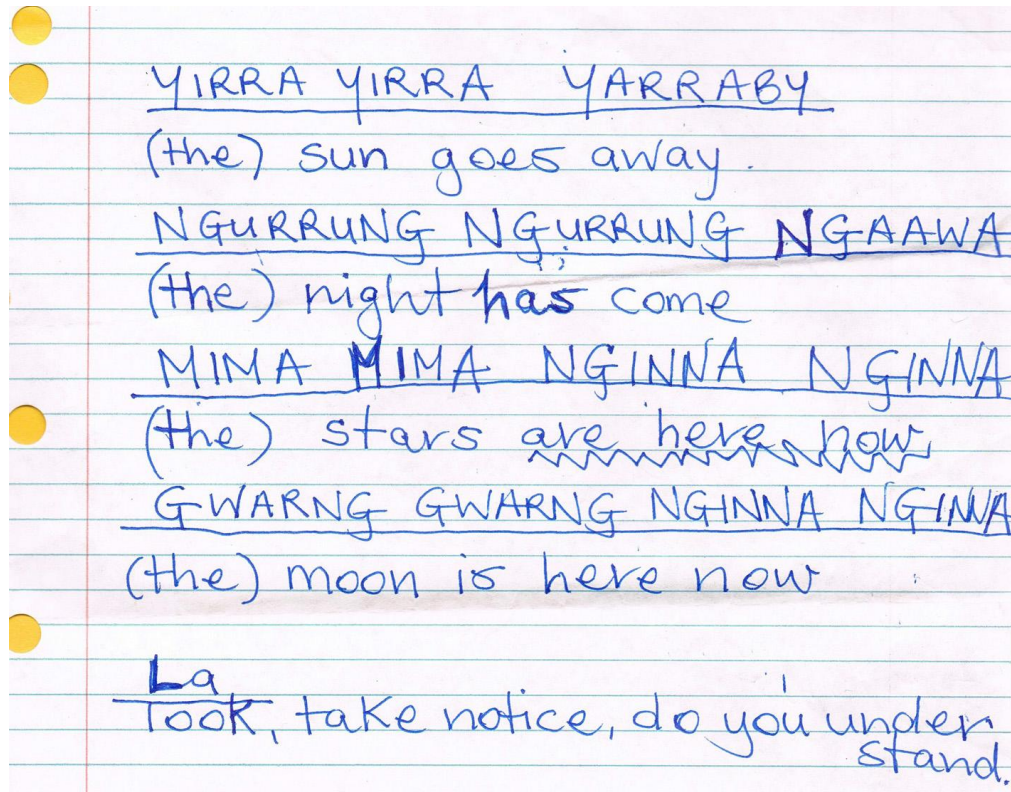 YIRRA YIRRA YARRABY
(the) sun goes away.
NGURRUNG NGURRUNG NGAAWA
(the) night has come
MIMA MIMA NGINNA NGINNA
(the) stars are here now
GWARNG GWARNG NGINNA NGINNA
(the) moon is here now
La
look, take notice, do you under
stand.